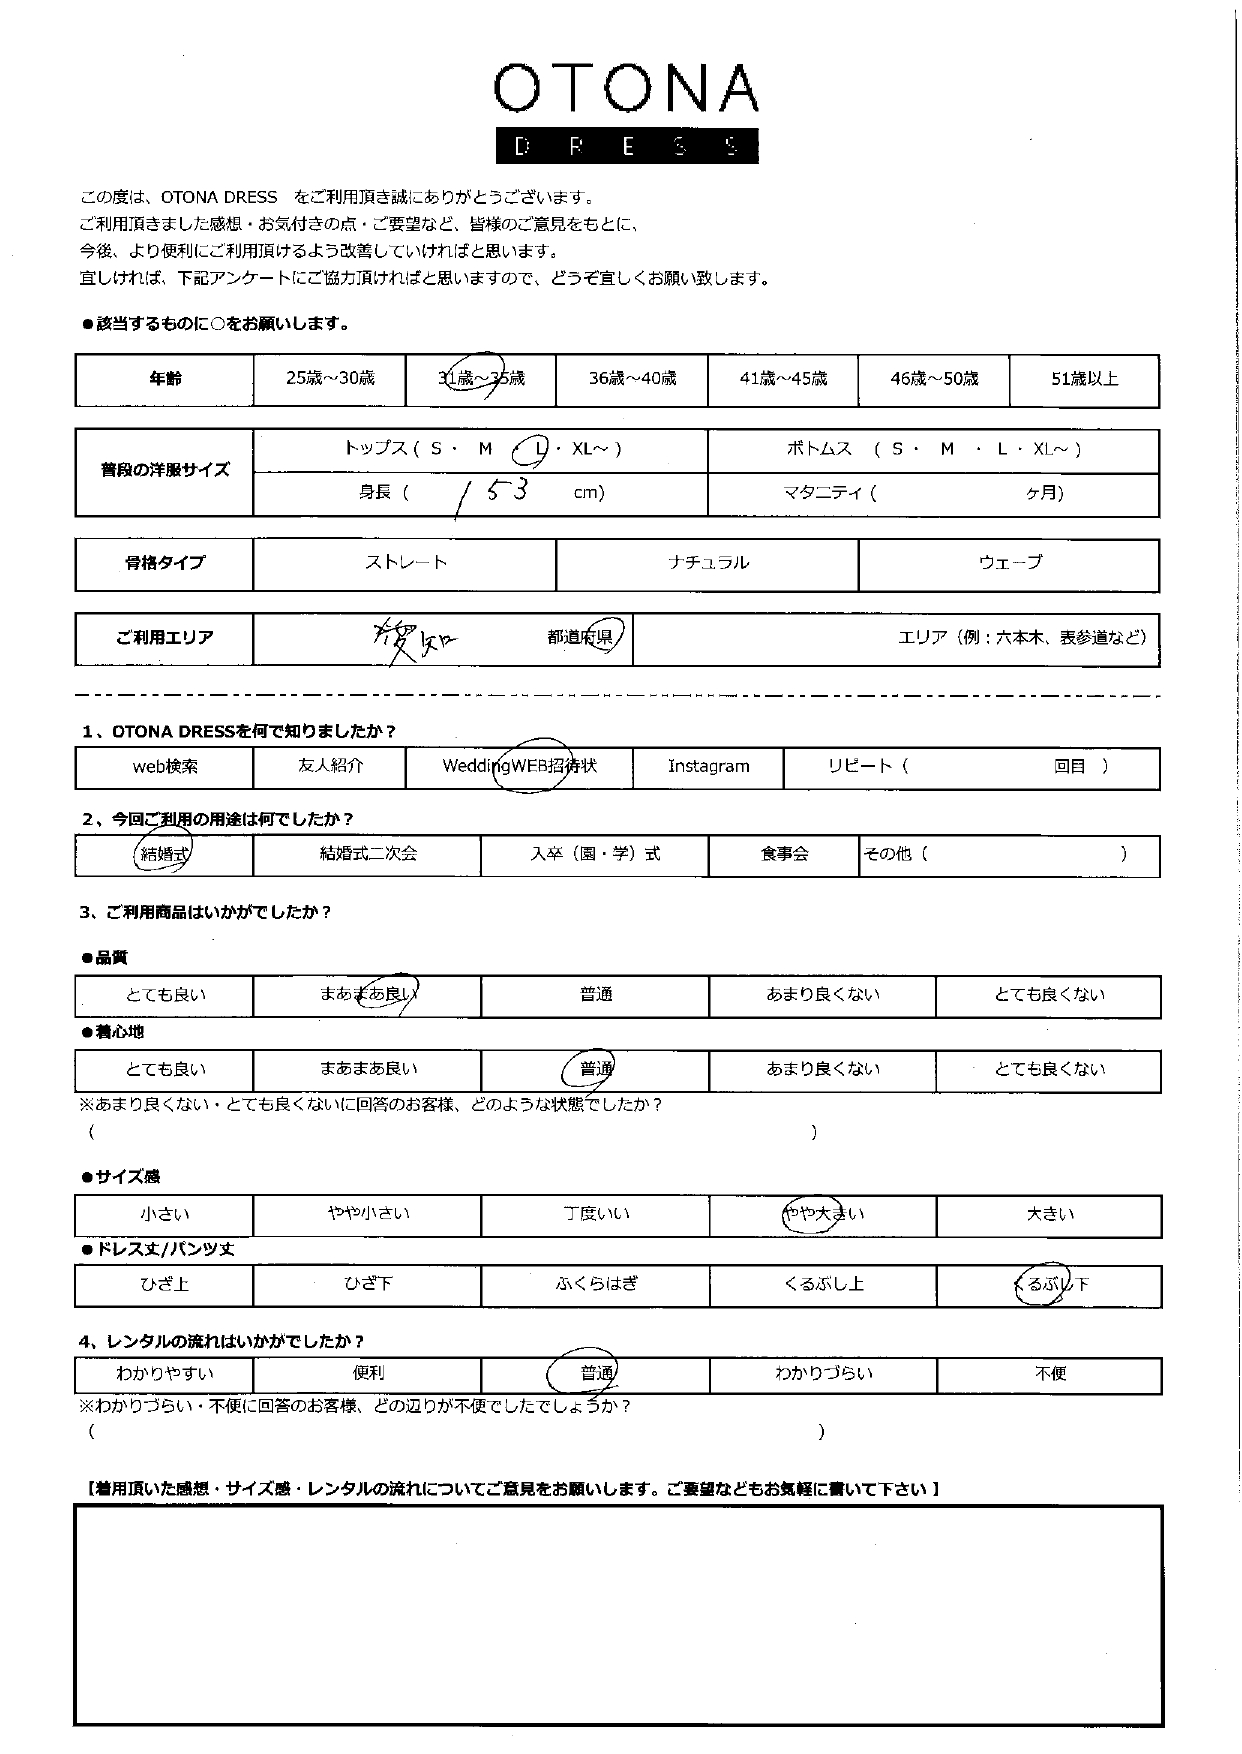 OTONA
DRESS
この度は、OTONA DRESS　をご利用頂き誠にありがとうございます。
ご利用頂きました感想・お気付きの点・ご要望など、皆様のご意見をもとに、
今後、より便利にご利用頂けるよう改善していければと思います。
宜しければ、下記アンケートにご協力頂ければと思いますので、どうぞ宜しくお願い致します。
●該当するものに○をお願いします。
年齢 25歳～30歳 31歳～35歳 36歳～40歳 41歳～45歳 46歳～50歳 51歳以上
普段の洋服サイズ トップス ( S ・ M ・ L ・ XL～ ) ボトムス ( S ・ M ・ L ・ XL～ )
身長 ( 153 cm) マタニティ ( ヶ月)
骨格タイプ ストレート ナチュラル ウェーブ
ご利用エリア 愛知 都道府県 エリア（例：六本木、表参道など）
1、OTONA DRESSを何で知りましたか？
web検索 友人紹介 WeddingWEB招待状 Instagram リピート ( 回目 )
2、今回ご利用の用途は何でしたか？
結婚式 結婚式二次会 入卒（園・学）式 食事会 その他 ( )
3、ご利用商品はいかがでしたか？
●品質
とても良い まあまあ良い 普通 あまり良くない とても良くない
●着心地
とても良い まあまあ良い 普通 あまり良くない とても良くない
※あまり良くない・とても良くないに回答のお客様、どのような状態でしたか？
( )
●サイズ感
小さい やや小さい 丁度いい やや大きい 大きい
●ドレス丈/パンツ丈
ひざ上 ひざ下 ふくらはぎ くるぶし上 くるぶし下
4、レンタルの流れはいかがでしたか？
わかりやすい 便利 普通 わかりづらい 不便
※わかりづらい・不便に回答のお客様、どの辺りが不便でしたでしょうか？
( )
【着用頂いた感想・サイズ感・レンタルの流れについてご意見をお願いします。ご要望などもお気軽に書いて下さい】